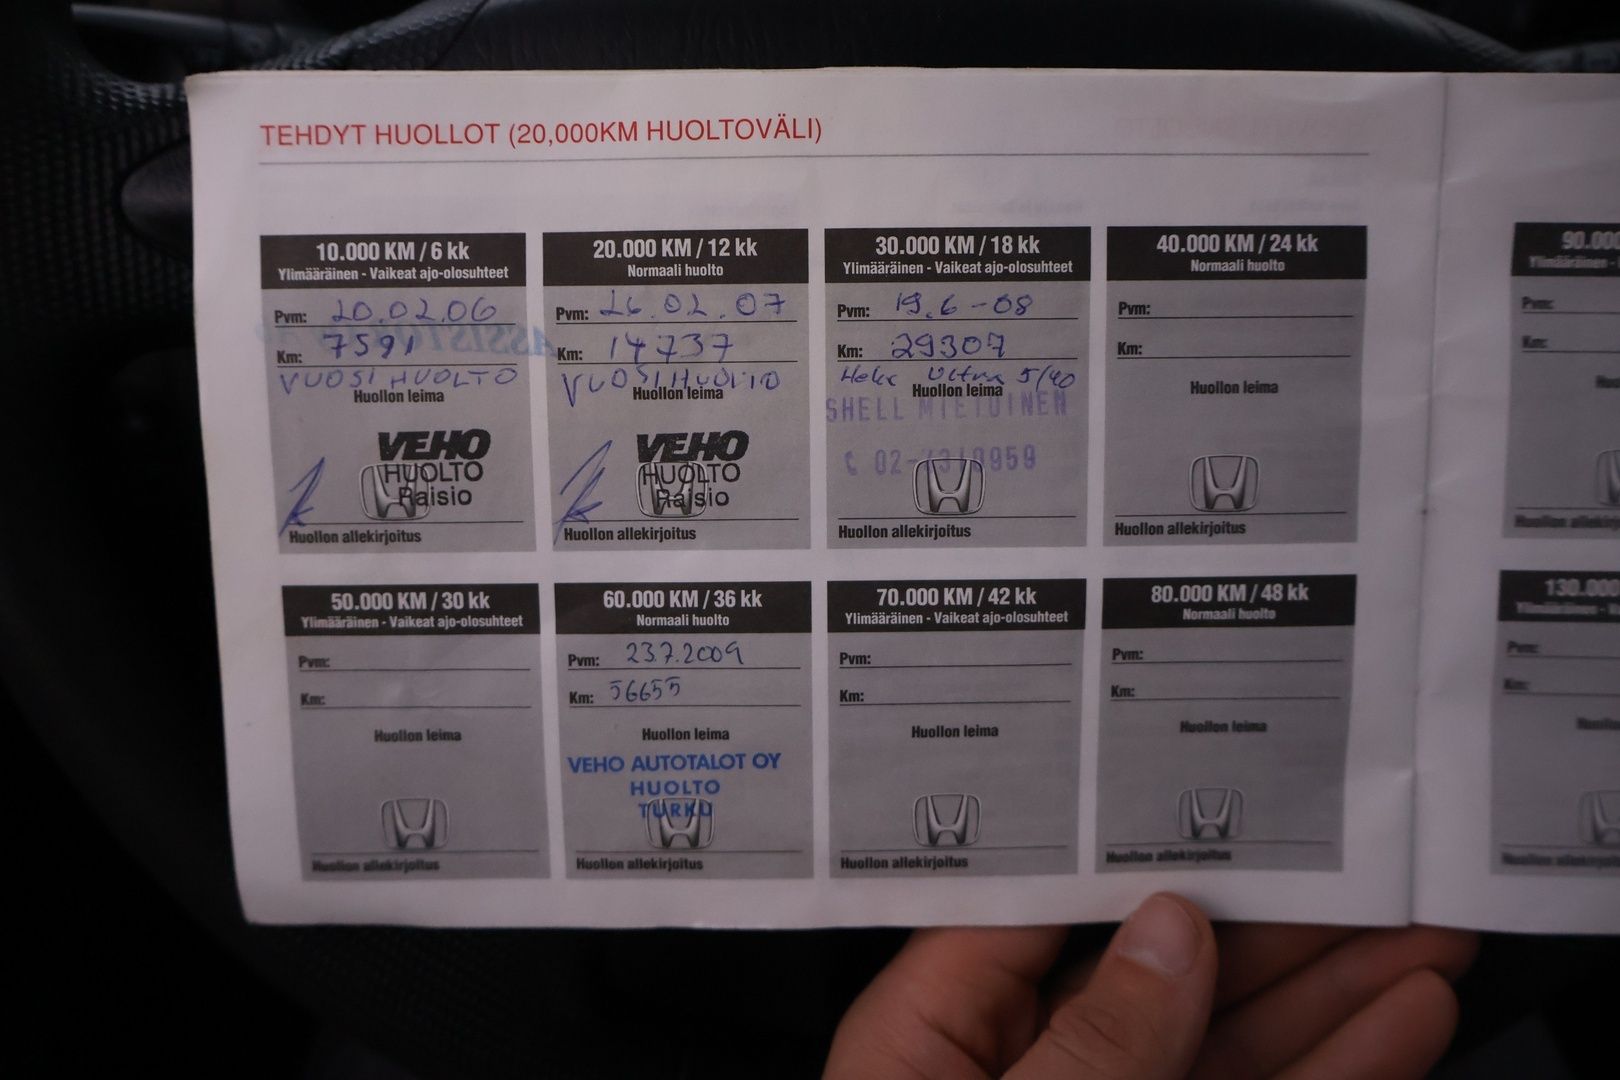 TEHDYT HUOLLOT (20,000KM HUOLTOVÄLI)
10.000 KM / 6 kk
Ylimääräinen - Vaikeat ajo-olosuhteet
Pvm: 20.02.06
Km: 7591
VUOSI HUOLTO
Huollon leima
VEHO
HUOLTO
Raisio
Huollon allekirjoitus
20.000 KM / 12 kk
Normaali huolto
Pvm: 26.02.07
Km: 14737
VUOSI HUOLTO
Huollon leima
VEHO
HUOLTO
Raisio
Huollon allekirjoitus
30.000 KM / 18 kk
Ylimääräinen - Vaikeat ajo-olosuhteet
Pvm: 19.6-08
Km: 29307
Ultra 5/40
Huollon leima
SHELL MIETOINEN
Huollon allekirjoitus
40.000 KM / 24 kk
Normaali huolto
Pvm:
Km:
Huollon leima
Huollon allekirjoitus
50.000 KM / 30 kk
Ylimääräinen - Vaikeat ajo-olosuhteet
Pvm:
Km:
Huollon leima
Huollon allekirjoitus
60.000 KM / 36 kk
Normaali huolto
Pvm: 23.7.2009
Km: 56655
Huollon leima
VEHO AUTOTALOT OY
HUOLTO
TURKU
Huollon allekirjoitus
70.000 KM / 42 kk
Ylimääräinen - Vaikeat ajo-olosuhteet
Pvm:
Km:
Huollon leima
Huollon allekirjoitus
80.000 KM / 48 kk
Normaali huolto
Pvm:
Km:
Huollon leima
Huollon allekirjoitus
Pvm:
Km:
Pvm:
Km: